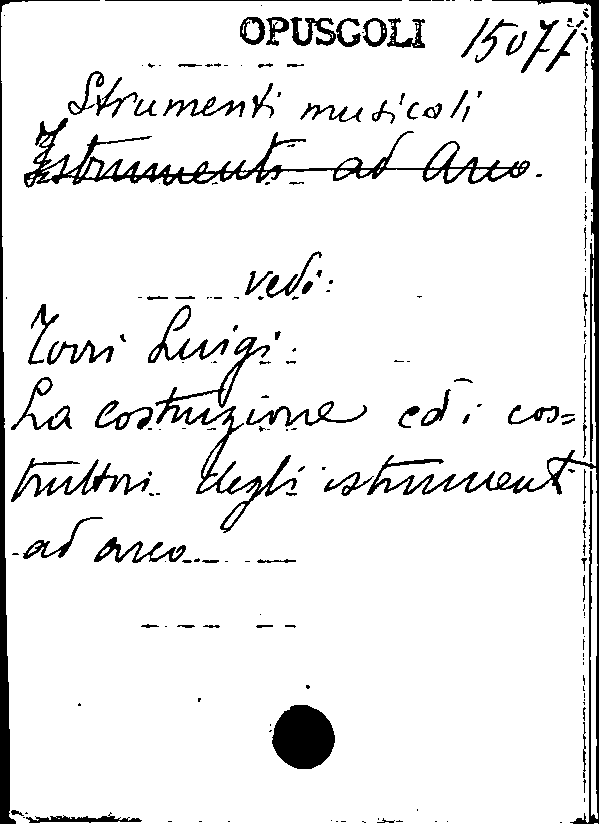 OPUSCOLI 15077
Strumenti musicali
Istrumenti ad Arco.
vedi:
Torri Luigi:
La costruzione ed i cos=
truttori degli istrumenti
ad arco